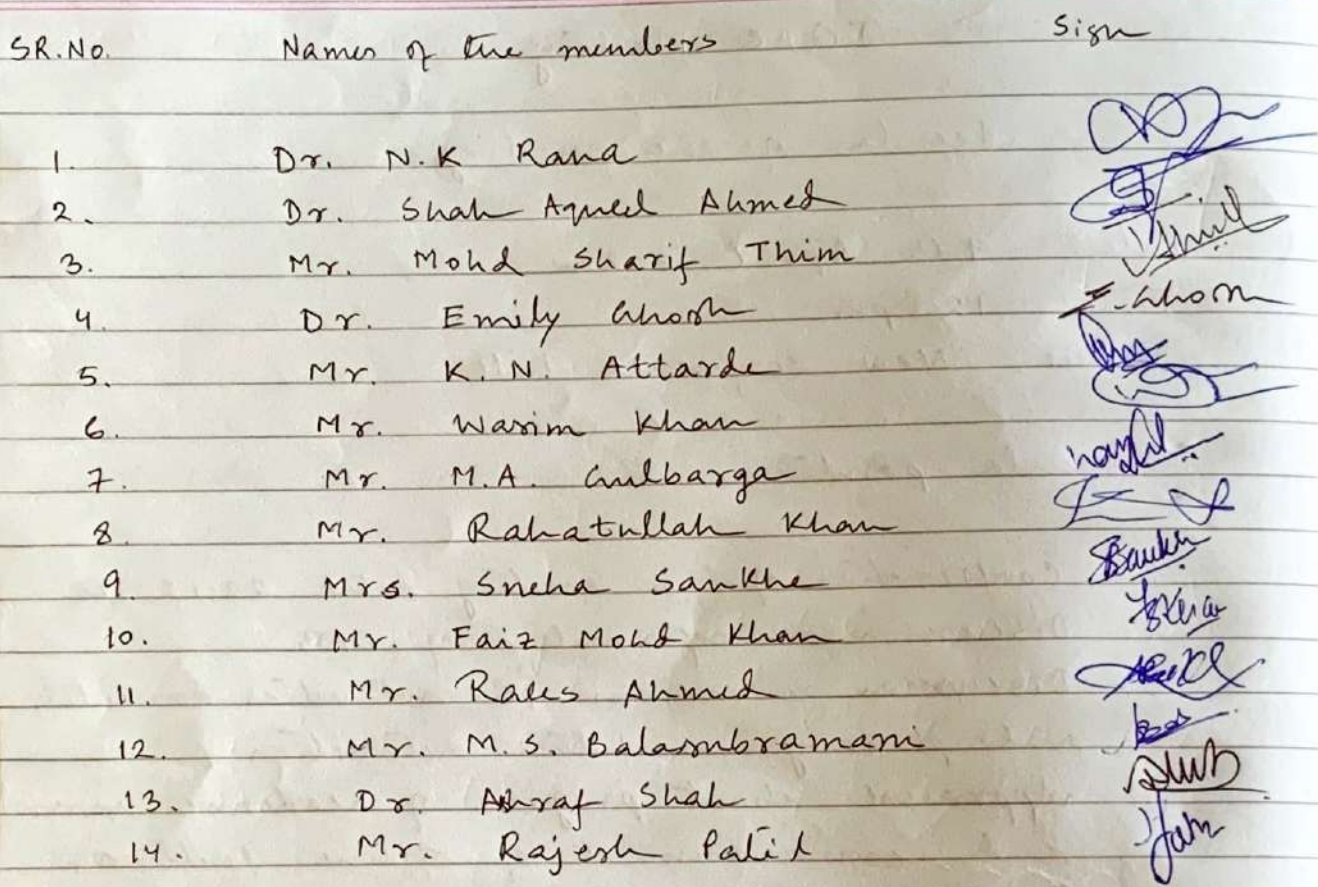 SR.No. Names of the members Sign
1. Dr. N.K Rana
2. Dr. Shah Aqueel Ahmed
3. Mr. Mohd Sharif Thim
4. Dr. Emily Ghosh E.Ghosh
5. Mr. K.N. Attarde
6. Mr. Wasim Khan
7. Mr. M.A. Gulbarga
8. Mr. Rahatullah Khan
9. Mrs. Sneha Sankhe
10. Mr. Faiz Mohd Khan
11. Mr. Raees Ahmed
12. Mr. M.S. Balasubramani
13. Dr Ashraf Shah
14. Mr. Rajesh Patil